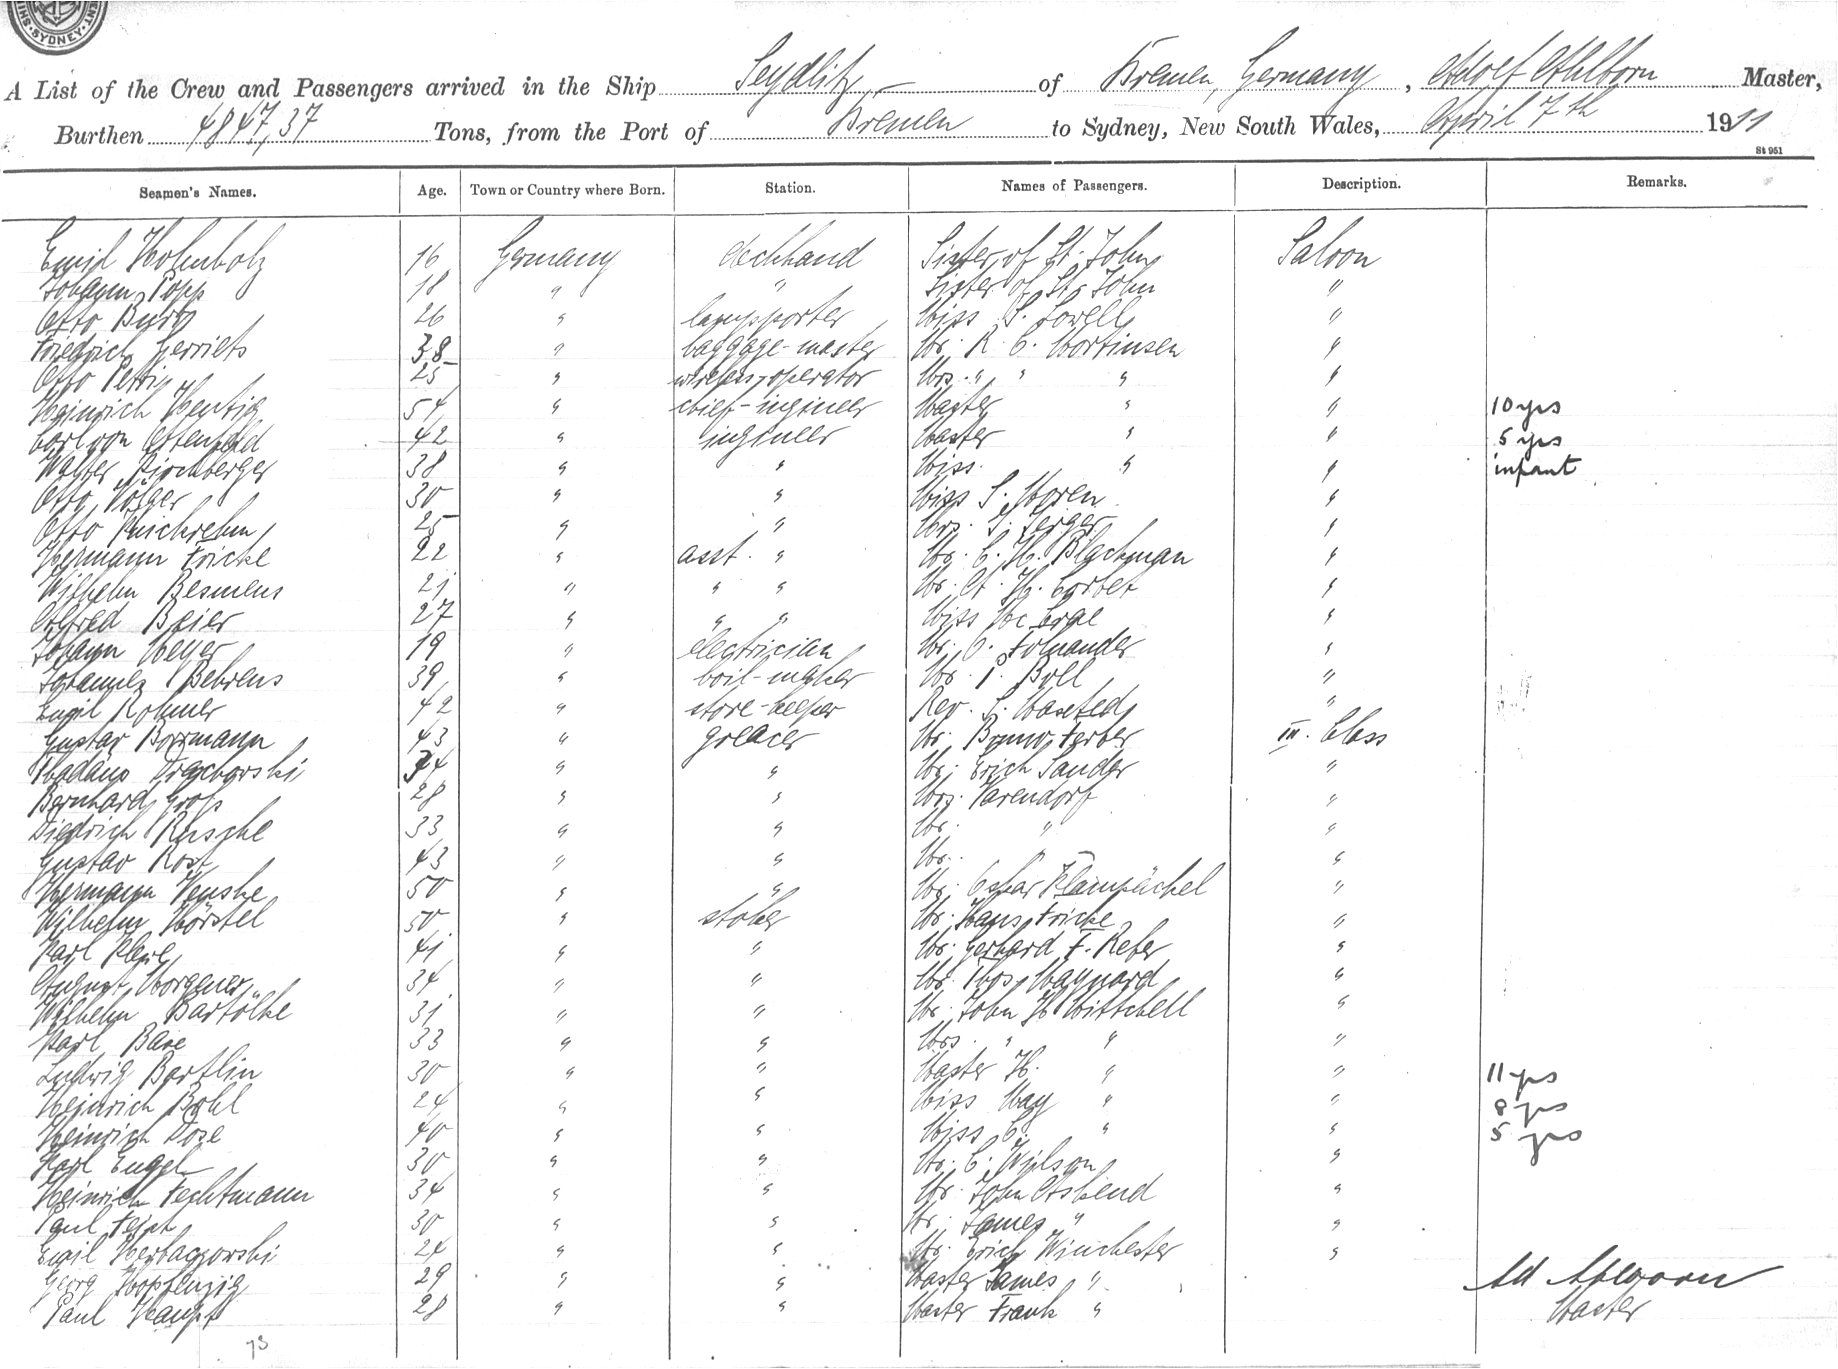 SYDNEY
A List of the Crew and Passengers arrived in the Ship Seydlitz, of Bremen, Germany, Adolf Ahlborn Master,
Burthen 4847,37 Tons, from the Port of Bremen to Sydney, New South Wales, April 7th 1911
St 951
Seamen's Names. Age. Town or Country where Born. Station. Names of Passengers. Description. Remarks.
Emil Hohnholz 16 Germany deckhand Sister of St. John Saloon
Johann Popp 18 " " Sister of St. John "
Otto 26 " lampporter Miss S. Lowell "
Friedrich Gerriets 38 " baggage-master Mr. R. C. Mortinsen "
Otto 25 " wireless-operator Mrs. " " " "
Heinrich Hentig 54 " chief-ingineer Master " " 10 yrs
Carl von 42 " ingineer Master " " 5 yrs
Walter Kirchberger 38 " " Miss. " " infant
Otto 30 " " Miss S. Moren "
Otto 25 " " Mrs. S. "
Hermann Fricke 22 " asst. " Mr. C. H. Blackman "
Wilhelm Besmens 21 " " " Mr. A. H. Corbet "
Alfred Beier 27 " " " Miss "
Johann Meyer 19 " electrician Mr. "
Johannes Behrens 39 " boil-maker Mr. P. Boll "
Emil Rohmer 42 " store-keeper Rev. S. "
Gustav Borrmann 43 " greacer Mr. Bruno Ferber III. Class
44 " " Mr. Erich Sander "
Bernhard Gross 28 " " Mrs. Varendorf "
Diedrich Rusche 33 " " Mr. " "
Gustav Rost 43 " " Mr. " "
Hermann Henske 50 " " Mr. Oskar "
Wilhelm Hörstel 50 " stoker Mr. Hans Fricke "
Karl 41 " " Mr. Gerhard F. Refer "
August Morgener 34 " " Mr. Thos. Maynard "
Wilhelm Bartölke 31 " " Mr. John H. Mittchell "
Karl Base 33 " " Mrs. " " "
Ludwig Bartlin 30 " " Master H. " " 11 yrs
Heinrich Bohl 24 " " Miss May " " 8 yrs
Heinrich Dose 40 " " Miss C. " " 5 yrs
Karl Engel 30 " " Mr. C. Wilson "
Heinrich Fechtmann 34 " " Mr. John "
Paul Feist 30 " " Mr. James " "
Emil 24 " " Mr. Erich Winchester "
Georg 29 " " Master James "
Paul Haupt 28 " " Master Frank "
Ad Ahlborn
Master